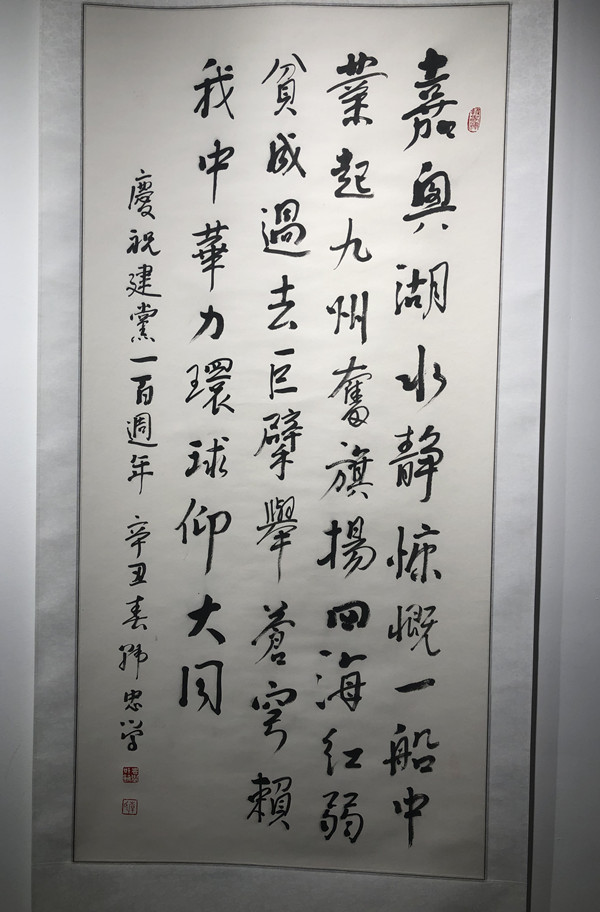 嘉興湖水靜慷慨一船中
業起九州奮旗揚四海紅弱
貧成過去巨擘舉蒼穹賴
我中華力環球仰大同
慶祝建黨一百週年 辛丑春韓忠學